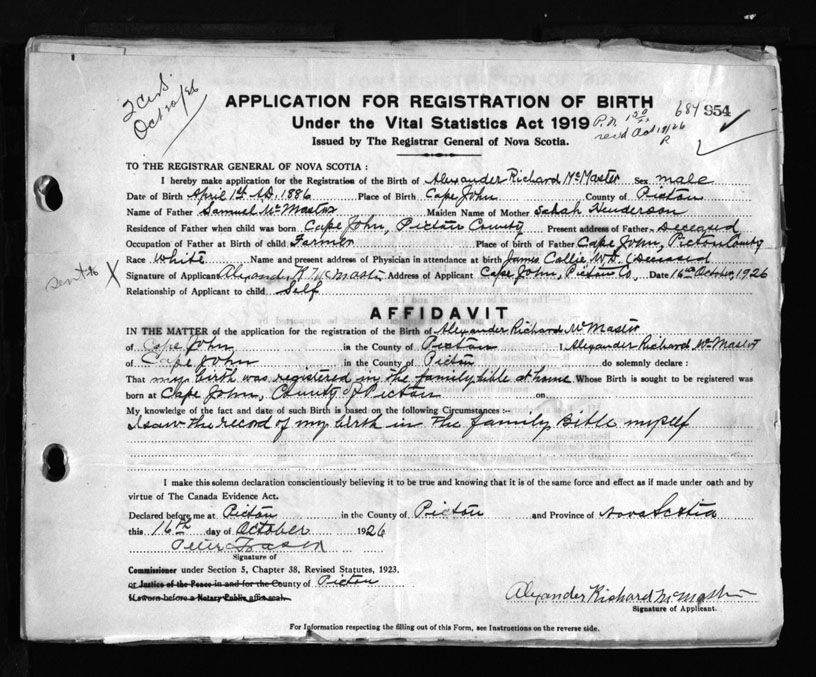 2 cus.
Oct 20/26
APPLICATION FOR REGISTRATION OF BIRTH
Under the Vital Statistics Act 1919
Issued by The Registrar General of Nova Scotia.
P.N. 150
recd Oct 19/26
R
684 954
TO THE REGISTRAR GENERAL OF NOVA SCOTIA :
I hereby make application for the Registration of the Birth of Alexander Richard McMaster Sex male
Date of Birth April 1st A.D. 1886 Place of Birth Cape John County of Pictou
Name of Father Samuel McMaster Maiden Name of Mother Sarah Henderson
Residence of Father when child was born Cape John, Pictou County Present address of Father Deceased
Occupation of Father at Birth of child Farmer Place of birth of Father Cape John, Pictou County
Race White Name and present address of Physician in attendance at birth James Collie, M.D. (Deceased
sent to X Signature of Applicant Alexander R McMaster Address of Applicant Cape John, Pictou Co, Date 16th October, 1926
Relationship of Applicant to child Self
AFFIDAVIT
IN THE MATTER of the application for the registration of the Birth of Alexander Richard McMaster
of Cape John in the County of Pictou I, Alexander Richard McMaster
of Cape John in the County of Pictou do solemnly declare :
That my birth was registered in the family bible at home Whose Birth is sought to be registered was
born at Cape John, County of Pictou on
My knowledge of the fact and date of such Birth is based on the following Circumstances :-
I saw the record of my birth in the family Bible myself
I make this solemn declaration conscientiously believing it to be true and knowing that it is of the same force and effect as if made under oath and by
virtue of The Canada Evidence Act.
Declared before me at Pictou in the County of Pictou and Province of Nova Scotia
this 16th day of October 1926
Peter Fraser
Signature of
Commissioner under Section 5, Chapter 38, Revised Statutes, 1923.
or Justice of the Peace in and for the County of Pictou
If sworn before a Notary Public affix seal.
Alexander Richard McMaster
Signature of Applicant.
For Information respecting the filling out of this Form, see Instructions on the reverse side.